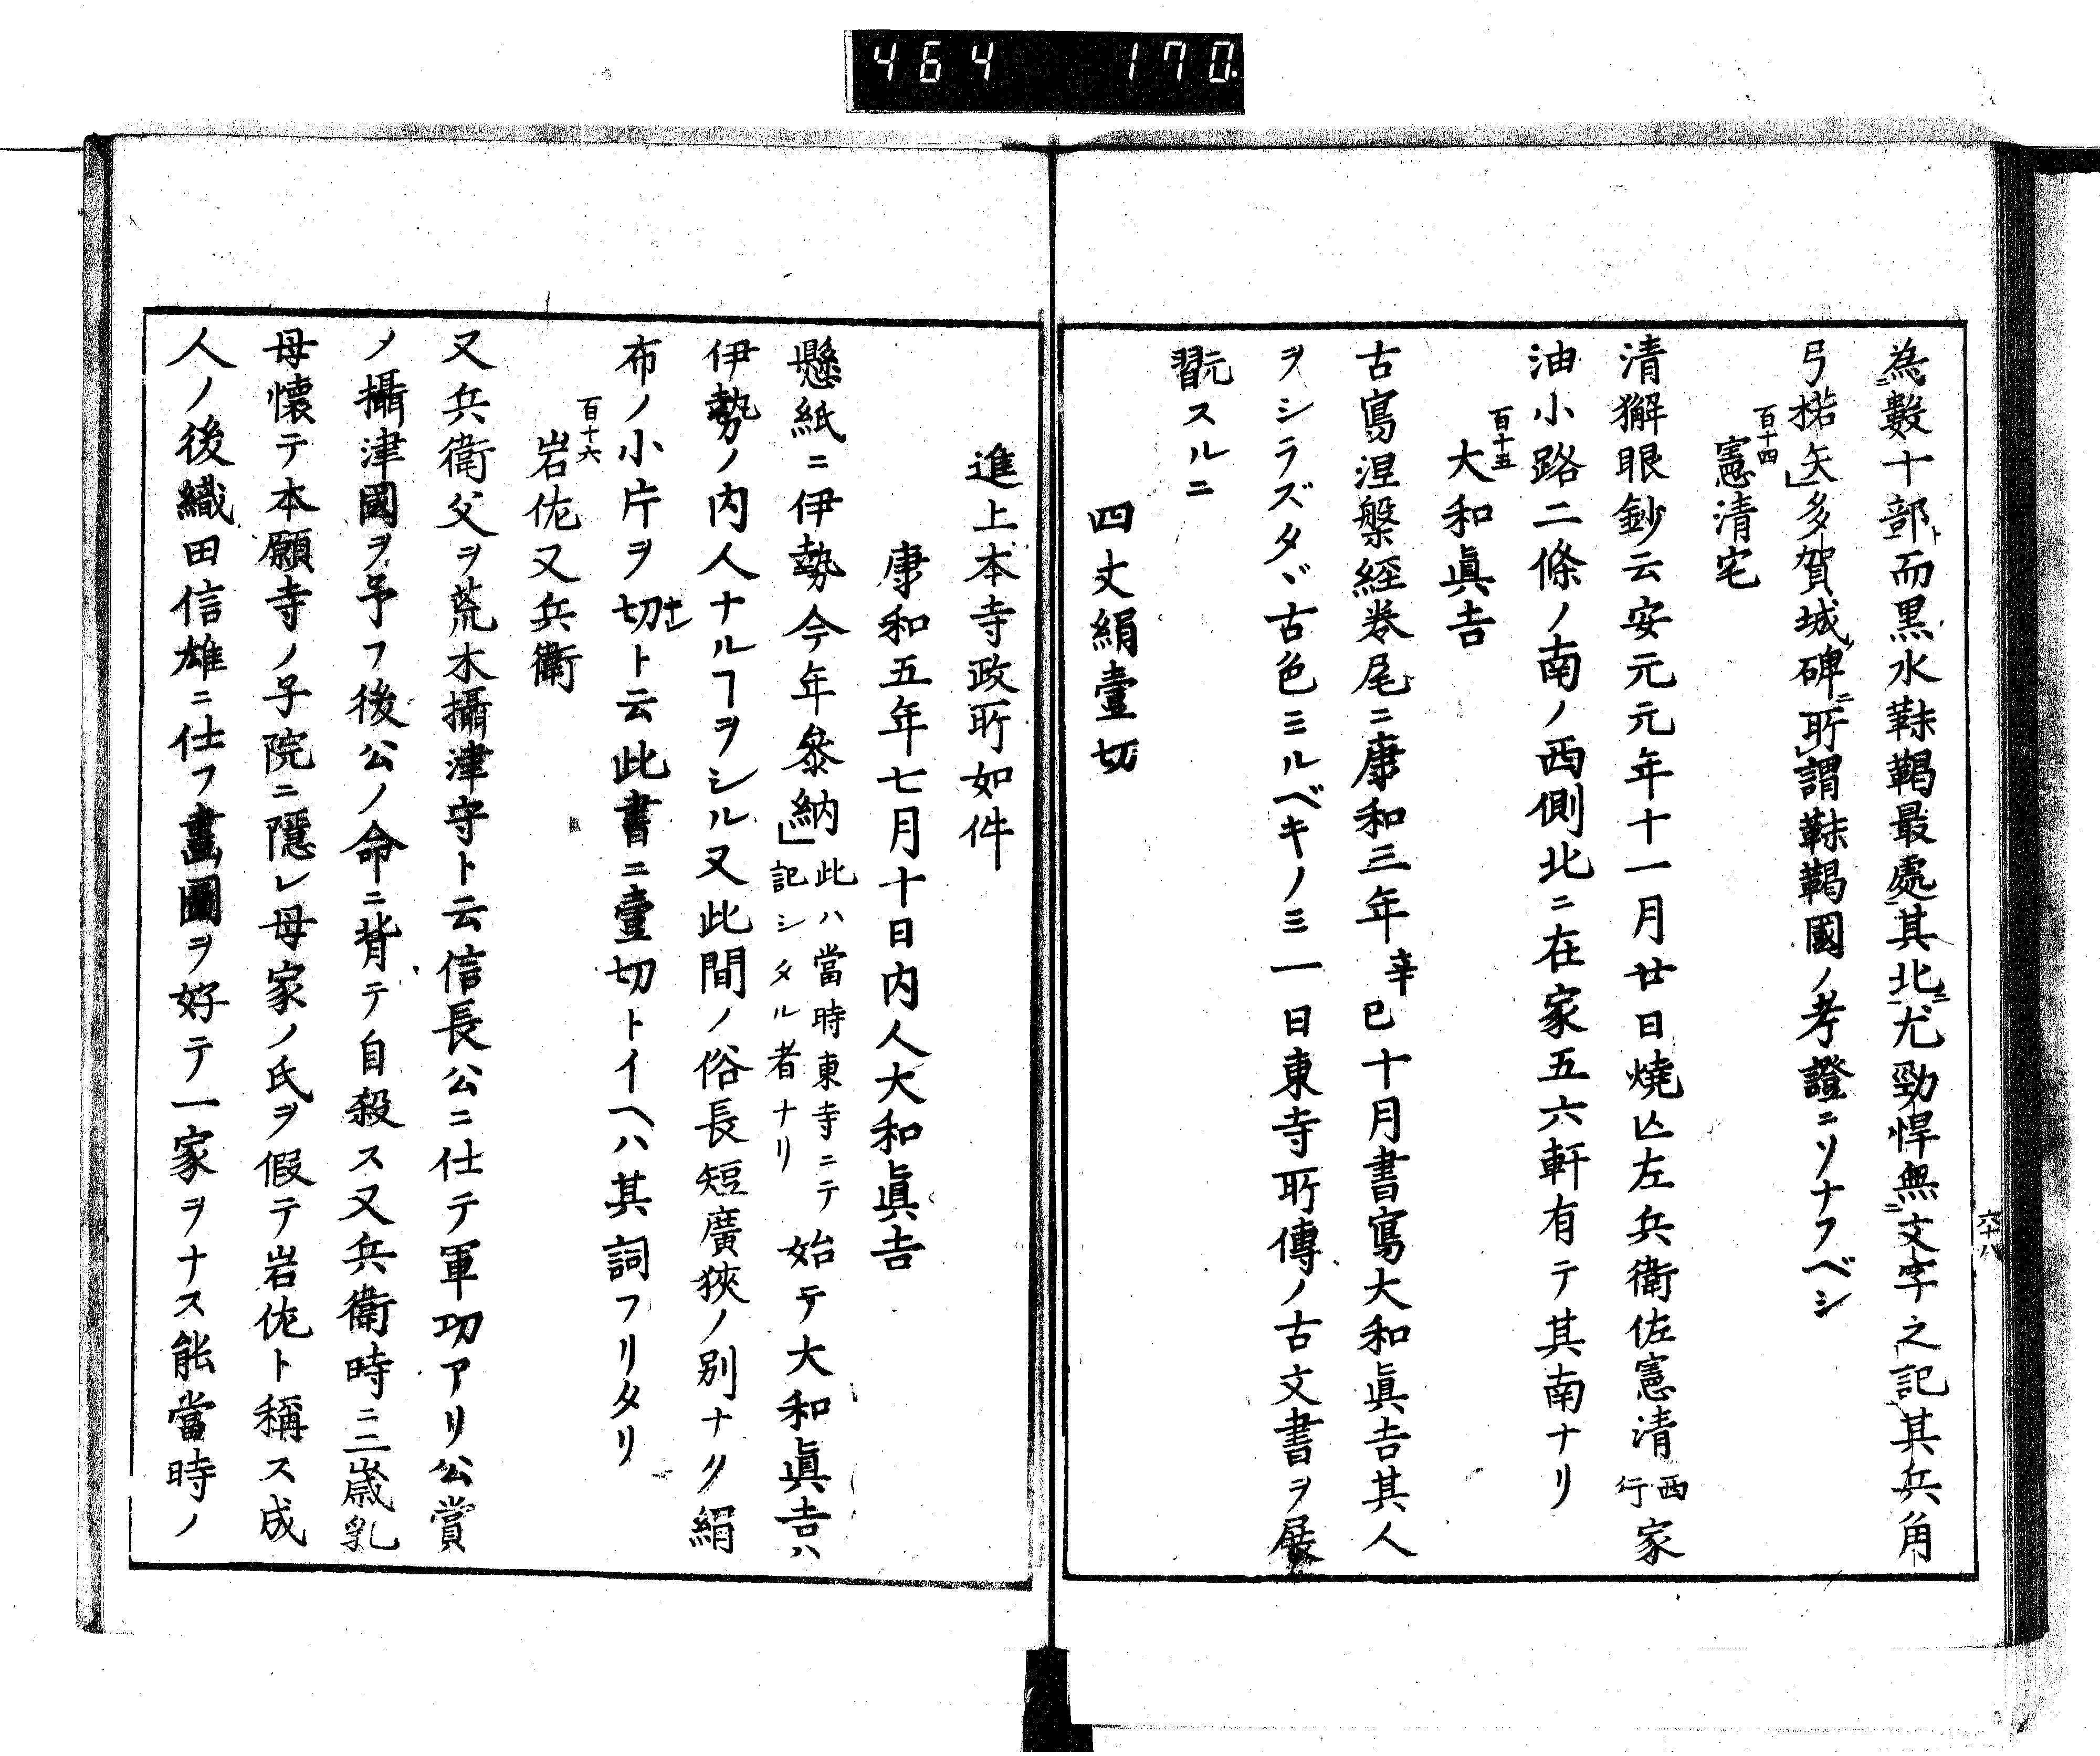 464 170.
六十八
為ニ數十部ト而黒水靺鞨最處其北ニ尤勁悍無ニ文字之記其兵角
弓楛矢」多賀城碑ニ所謂靺鞨國ノ考證ニソナフベシ
百十四
憲清宅
清獬眼鈔云安元元年十一月廿日焼亡左兵衛佐憲清西行家
油小路二條ノ南ノ西側北ニ在家五六軒有テ其南ナリ
百十五
大和眞吉
古寫涅槃経巻尾ニ康和三年辛巳十月書寫大和眞吉其人
ヲシラズタヾ古色ミルベキノミ一日東寺所傳ノ古文書ヲ展
翫スルニ
四丈絹壹切
進上本寺政所如件
康和五年七月十日内人大和眞吉
懸紙ニ伊勢今年叅納」此ハ當時東寺ニテ記シタル者ナリ始テ大和眞吉ハ
伊勢ノ内人ナルヿヲシル又此間ノ俗長短廣狹ノ別ナク絹
布ノ小片ヲ切キレト云此書ニ壹切トイヘハ其詞フリタリ
百十六
岩佐又兵衛
又兵衛父ヲ荒木攝津守ト云信長公ニ仕テ軍功アリ公賞
メ攝津國ヲ予フ後公ノ命ニ背テ自殺ス又兵衛時ニ二歳乳
母懐テ本願寺ノ子院ニ隠レ母家ノ氏ヲ假テ岩佐ト稱ス成
人ノ後織田信雄ニ仕フ畫圖ヲ好テ一家ヲナス能當時ノ